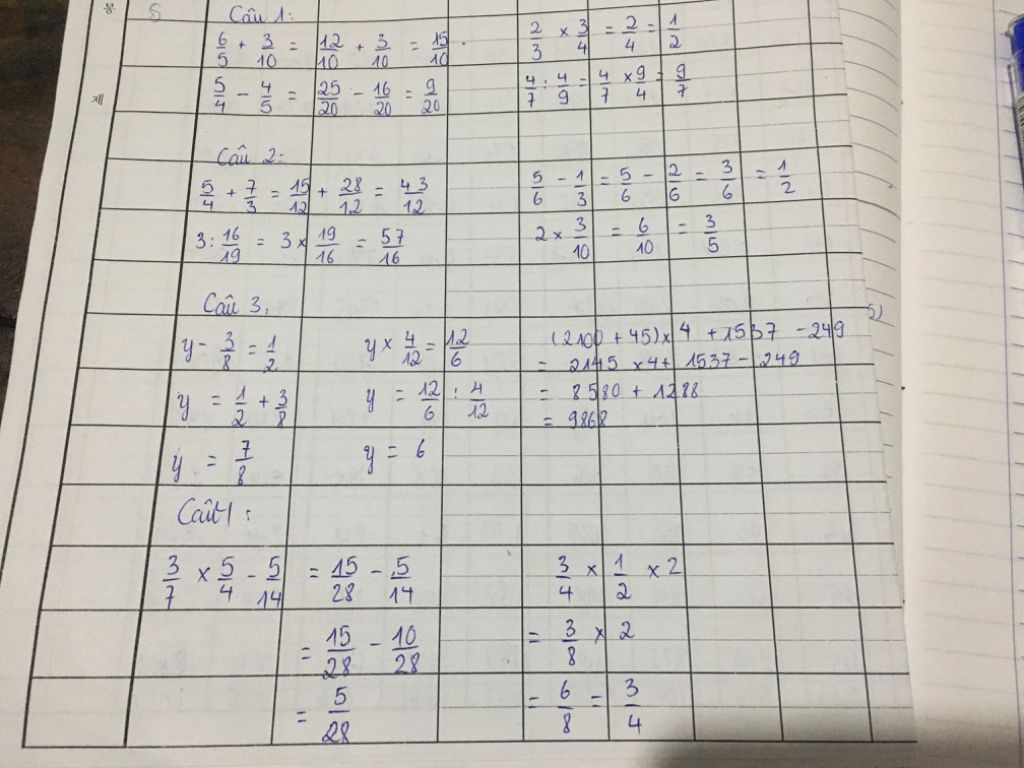 Câu 1:
6/5 + 3/10 = 12/10 + 3/10 = 15/10 .
2/3 × 3/4 = 2/4 = 1/2
5/4 - 4/5 = 25/20 - 16/20 = 9/20
4/7 : 4/9 = 4/7 × 9/4 = 9/7
Câu 2:
5/4 + 7/3 = 15/12 + 28/12 = 43/12
5/6 - 1/3 = 5/6 - 2/6 = 3/6 = 1/2
3 : 16/19 = 3 × 19/16 = 57/16
2 × 3/10 = 6/10 = 3/5
Câu 3:
y - 3/8 = 1/2
y = 1/2 + 3/8
y = 7/8
y × 4/12 = 12/6
y = 12/6 : 4/12
y = 6
(2100 + 45) × 4 + 1537 - 249
= 2145 × 4 + 1537 - 249
= 8580 + 1288
= 9868
Câu 4:
3/7 × 5/4 - 5/14 = 15/28 - 5/14
= 15/28 - 10/28
= 5/28
3/4 × 1/2 × 2
= 3/8 × 2
= 6/8 = 3/4